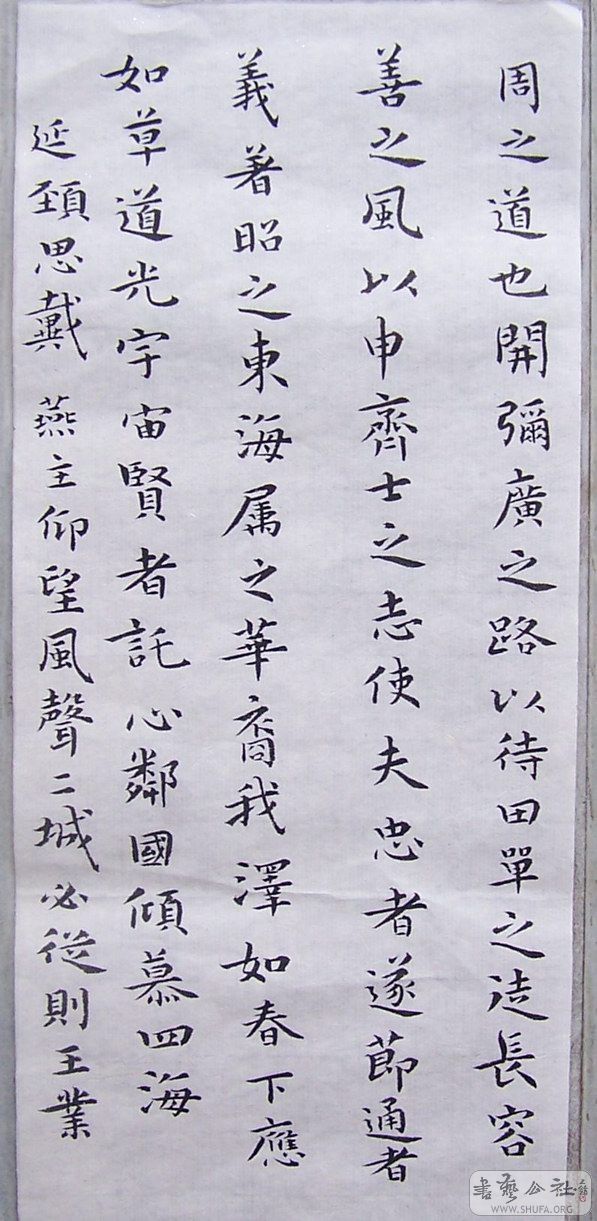 周之道也開彌廣之路以待田單之徒長容
善之風以申齊士之志使夫忠者遂節通者
義著昭之東海属之華裔我澤如春下應
如草道光宇宙賢者託心鄰國傾慕四海
延頸思戴燕主仰望風聲二城必從則王業
書藝公社
WWW.SHUFA.ORG